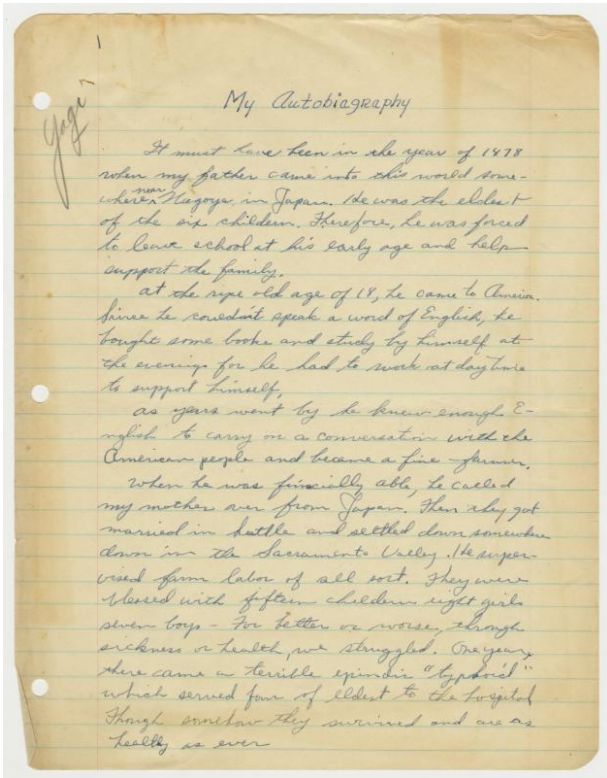 1
Yagi
My Autobiagraphy
It must have been in the year of 1878
when my father came into this world some-
where near Nagoya in Japan. He was the eldest
of the six childern. Therefore, he was forced
to leave school at his early age and help
support the family.
at the ripe old age of 18, he came to America.
Since he couldn't speak a word of English, he
bought some books and study by himself at
the evenings for he had to work at day time
to support himself,
as years went by he knew enough E-
nglish to carry on a conversation with the
American people and became a fine farmer.
When he was finicially able, he called
my mother over from Japan. Then they got
married in Seattle and settled down somewhere
down in the Sacramento Valley. He super-
vised farm labor of all sort. They were
blessed with fifteen childern eight girls
seven boys - For better or worse, through
sickness or health, we struggled. One year,
there came a terrible epimdic "typhoid"
which served four of eldest to the hospital
Though somehow they survived and are as
healthy as ever